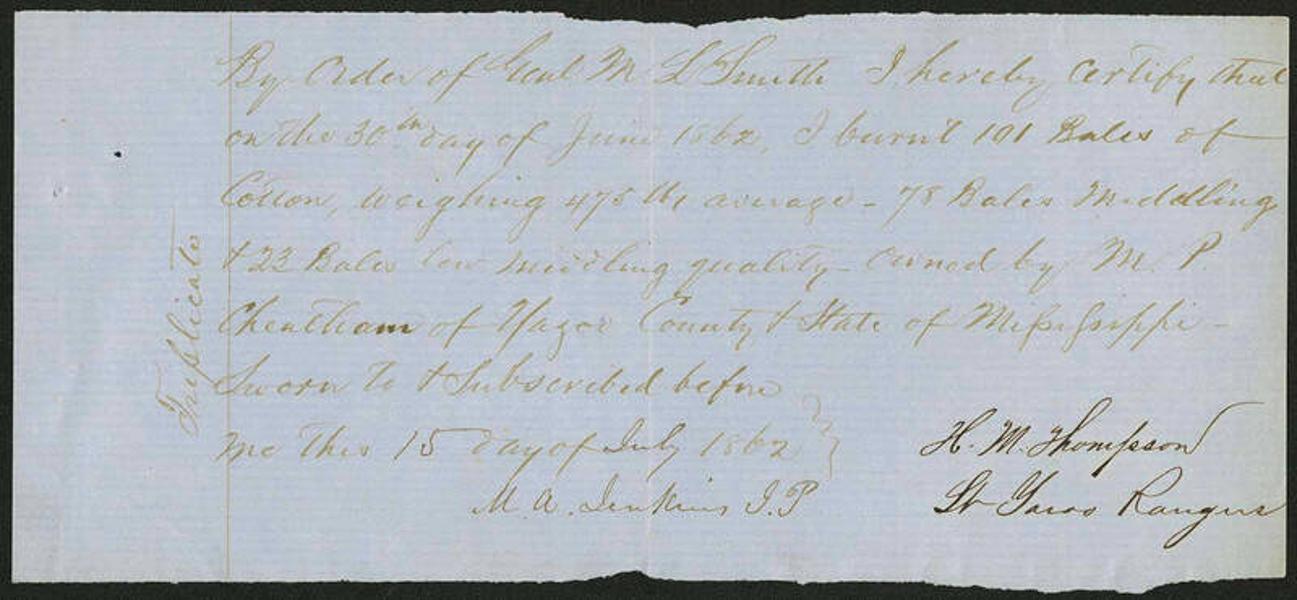 By Order of Genl M. L Smith I hereby certify that
on the 30th day of June 1862, I burnt 101 Bales of
Cotton, weighing 475 lbs average - 78 Bales Middling
+ 23 Bales low middling quality - owned by M. P.
Cheatham of Yazoo County + State of Mississippi -
Sworn to + Subscribed before
me this 15 day of July 1862
M. A. Jenkins J.P
H. M. Thompson
Lt Yazoo Rangers
Triplicate